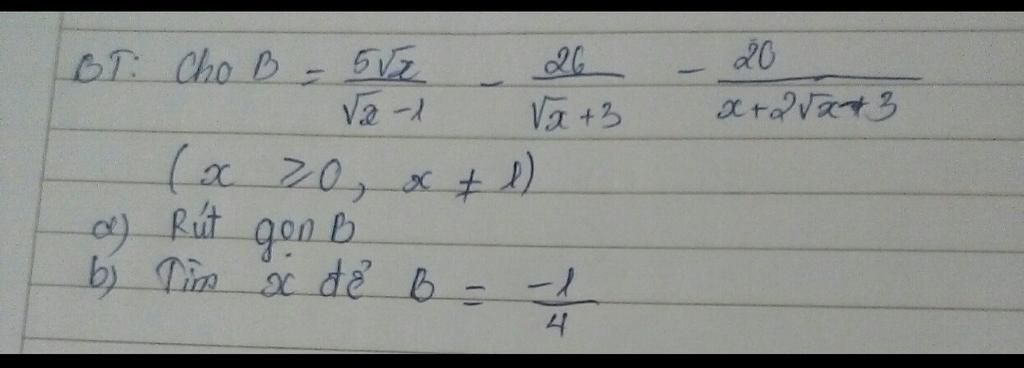 BT: Cho B = 5√x/(√x - 1) - 26/(√x + 3) - 20/(x + 2√x + 3)
(x ≥ 0, x ≠ 1)
a) Rút gọn B
b) Tìm x để B = -1/4